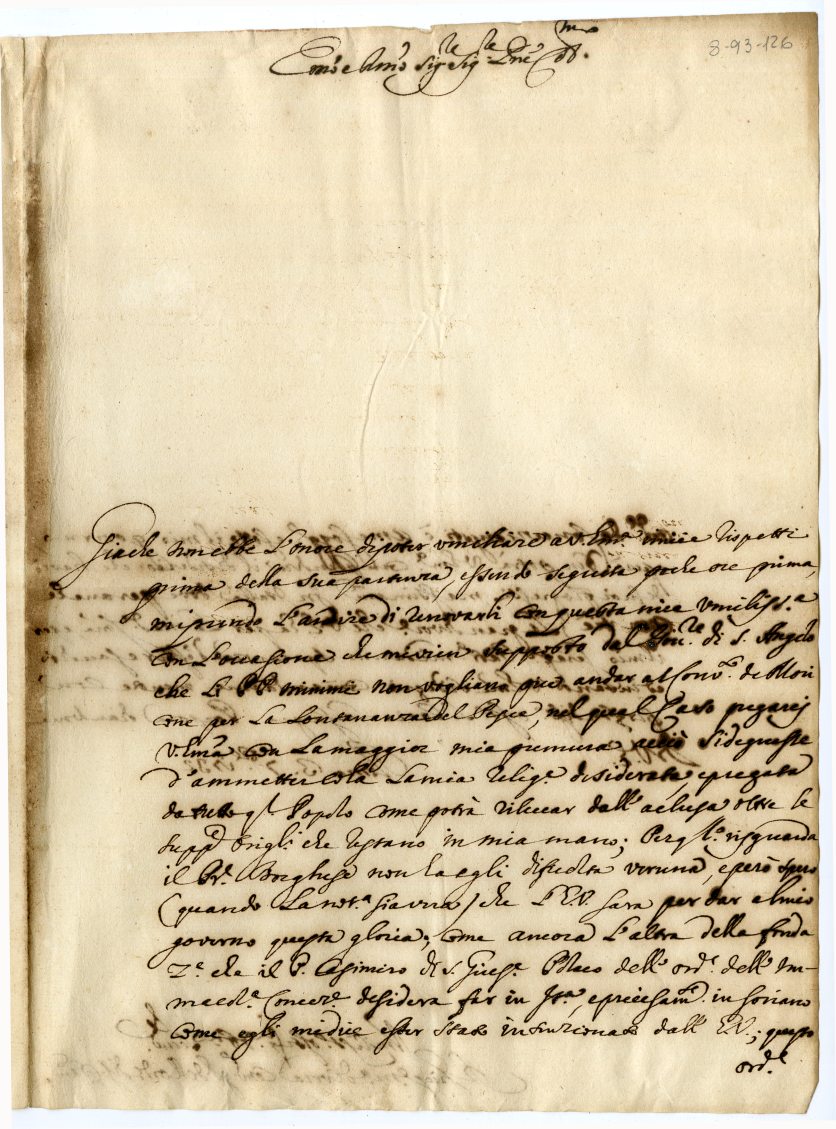 8-93-126
Em̃o e Rm̃o Sig.re Sig.re Pñe Col.mo
Giache non ebbe l'onore di poter umiliare a V. Em.a i miei rispetti
prima della sua partenza, essendo seguita poche ore prima,
mi prendo l'ardire di renovarli con questa mia umiliss.a
con l'occasione che mi vien supposto dal di S. Angelo
che li PP. minimi non vogliano più andar al Conv.o de
one per la lontananza del Pesce, nel qual caso pregarei
V. Em.a con la maggior mia premura acciò si degnasse
d'ammetter colà la mia Relig.e desiderata, e pregata
da tutto q.l Popolo come potrà rilevar dall'aclusa oltre le
supp.e Origli. che restano in mia mano; Per q.to risguarda
il Pr. Borghese non ha egli difficoltà veruna, e però spero
(quando la not.a sia vera) che l'E.V. sarà per dar al mio
governo questa gloria; come ancora l'altra della fonda
z.e che il P. Casimiro di S. Gius.e Polaco dell'ord.e dell'Im-
macol.a Concez.e desidera far in e precisam.e in Soriano
come egli mi dice esser stato intenzionato dall'E.V.; questo
ord.e